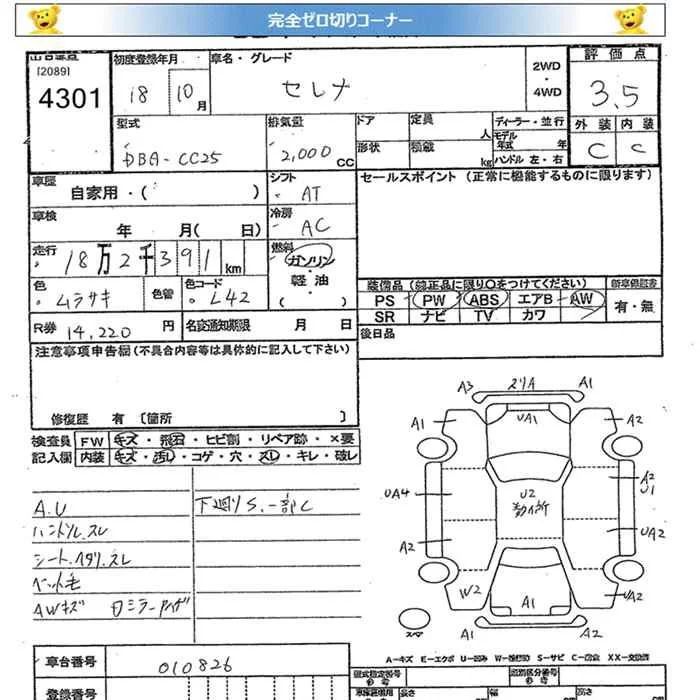 完全ゼロ切りコーナー
出品番号 初度登録年月 車名・グレード 2WD・4WD 評価点
[2089]
4301 18 10月 セレナ 3.5
型式 排気量 ドア 定員 人 ディーラー・並行 外装 内装
DBA-CC25 2,000CC 形状 積載 kg モデル年式 年 ハンドル 左・右 C C
車歴 自家用・( ) シフト AT セールスポイント (正常に機能するものに限ります)
車検 年 月( 日) 冷房 AC
走行 18万2千391km 燃料 ガソリン・軽油
色 ムラサキ 色替 色コード L42
装備品(純正品に限り○をつけてください) 新車保証書
PS PW ABS エアB AW 有・無
SR ナビ TV カワ
R券 14,220円 名変通知期限 月 日
後日品
注意事項申告欄(不具合内容等は具体的に記入して下さい)
修復歴 有 [箇所 ]
検査員 FW キズ・飛石・ヒビ割・リペア跡・×要
記入欄 内装 キズ・汚れ・コゲ・穴・スレ・キレ・破レ
A.U 下廻りS.一部C
ハンドルスレ
シート.スレ
ペット毛
AWキズ
A3 A1
A1 UA1 A2
A2
U1
UA4 U2
A2 UA2
W2 A1 UA2
A2
スペア
A-キズ E-エクボ U-凹み W-補修跡 S-サビ C-腐食 XX-交換済
車台番号 010826
型式指定番号 類別区分番号
登録番号 長さ 幅 高さ